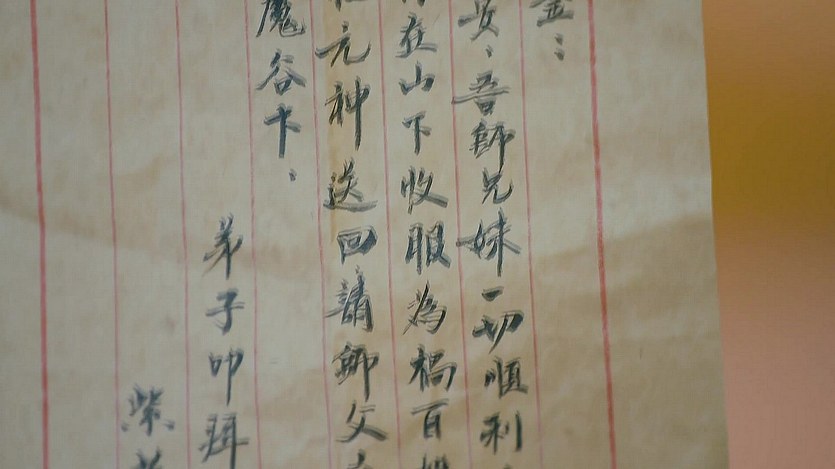 安：吾師兄妹一切順利
在山下收服為禍百
元神送回請師父
魔谷卞．
弟子叩拜
紫